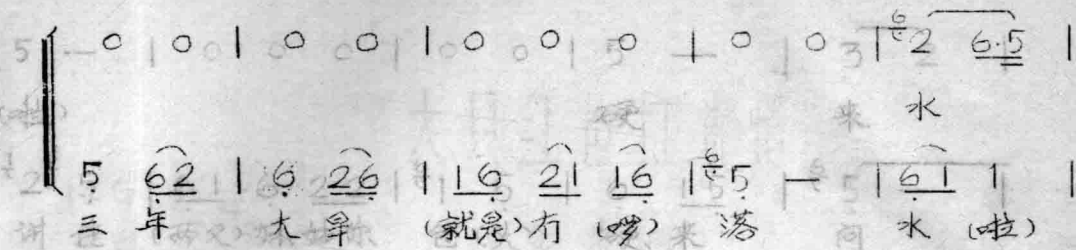 0 0 | 0 0 | 0 0 0 | 5 — | 0 0 | 6 2 6·5 |
水
5 6 2 | 6 2 6 | 1 6 2 1 1 6 | 6 5 — | 6 1 1 |
三 年 大 旱 (就是) 冇 (啰) 落 水 (啦)